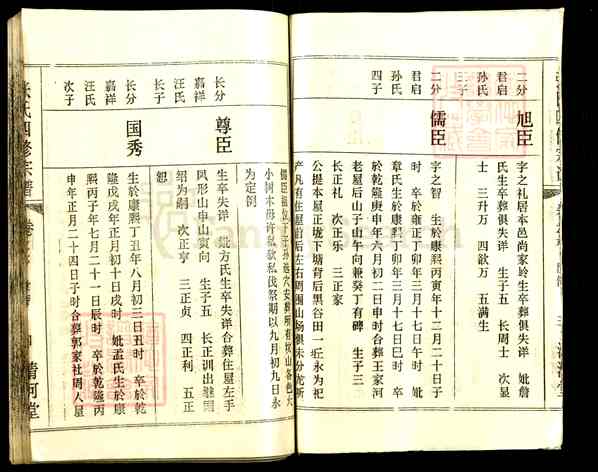 二分
君启
孙氏
三子
旭臣
字之礼居本邑尚家於生卒葬俱失详 妣詹
氏生卒葬俱失详 生子五 长周士 次显
士 三升万 四歆万 五满生
二分
君启
孙氏
四子
儒臣
字之智 生於康熙丙寅年十二月二十日子
时 卒於雍正丁卯年三月十七日午时 妣
章氏生於康熙丁卯年三月十七日巳时 卒
於乾隆庚申年六月初二日午时合葬王家河
老屋后山子山午向兼癸丁有碑 生子三
长正礼 次正乐 三正家
公提本屋正垅下塘背后黑谷田一丘永为祀
产凡有住屋前后左右周围山场俱未分
儒臣
小树木毋许私砍私伐祭期以九月初九日永
为定例
长分
嘉祥
汪氏
长子
尊臣
生卒失详 妣方氏生卒失详合葬住屋左手
凤形山申山寅向 生子五 长正训出继
绍为嗣 次正亨 三正贞 四正利 五正
恕
长分
嘉祥
汪氏
次子
国秀
生於康熙丁丑年八月初三日丑时 卒於乾
隆戊戌年正月初十日戌时 妣孟氏生於康
熙丙子年七月二十一日辰时 卒於乾隆丙
申年正月二十四日子时合葬郭家社周人屋
张氏四修宗谱
清河堂